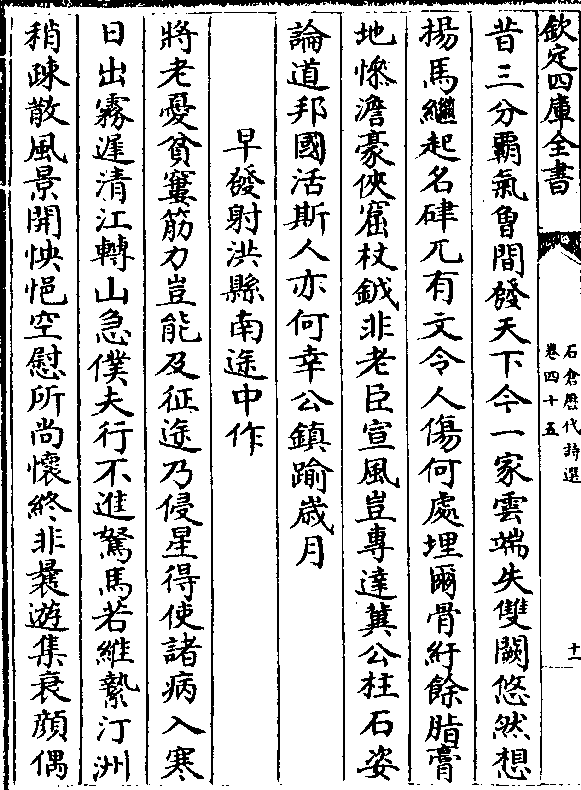 欽定四庫全書
石倉歴代詩選
卷四十五
十一
昔三分霸氣曽間發天下今一家雲端失雙闕悠然想
揚馬繼起名硉兀有文令人傷何處埋爾骨紆餘脂膏
地慘澹豪俠窟杖鉞非老臣宣風豈專達冀公柱石姿
論道邦國活斯人亦何幸公鎮踰歲月
早發射洪縣南途中作
將老憂貧窶筋力豈能及征途乃侵星得使諸病入寒
日出霧遲清江轉山急僕夫行不進駑馬若維縶汀洲
稍疎散風景開怏悒空慰所尚懷終非曩遊集衰顔偶